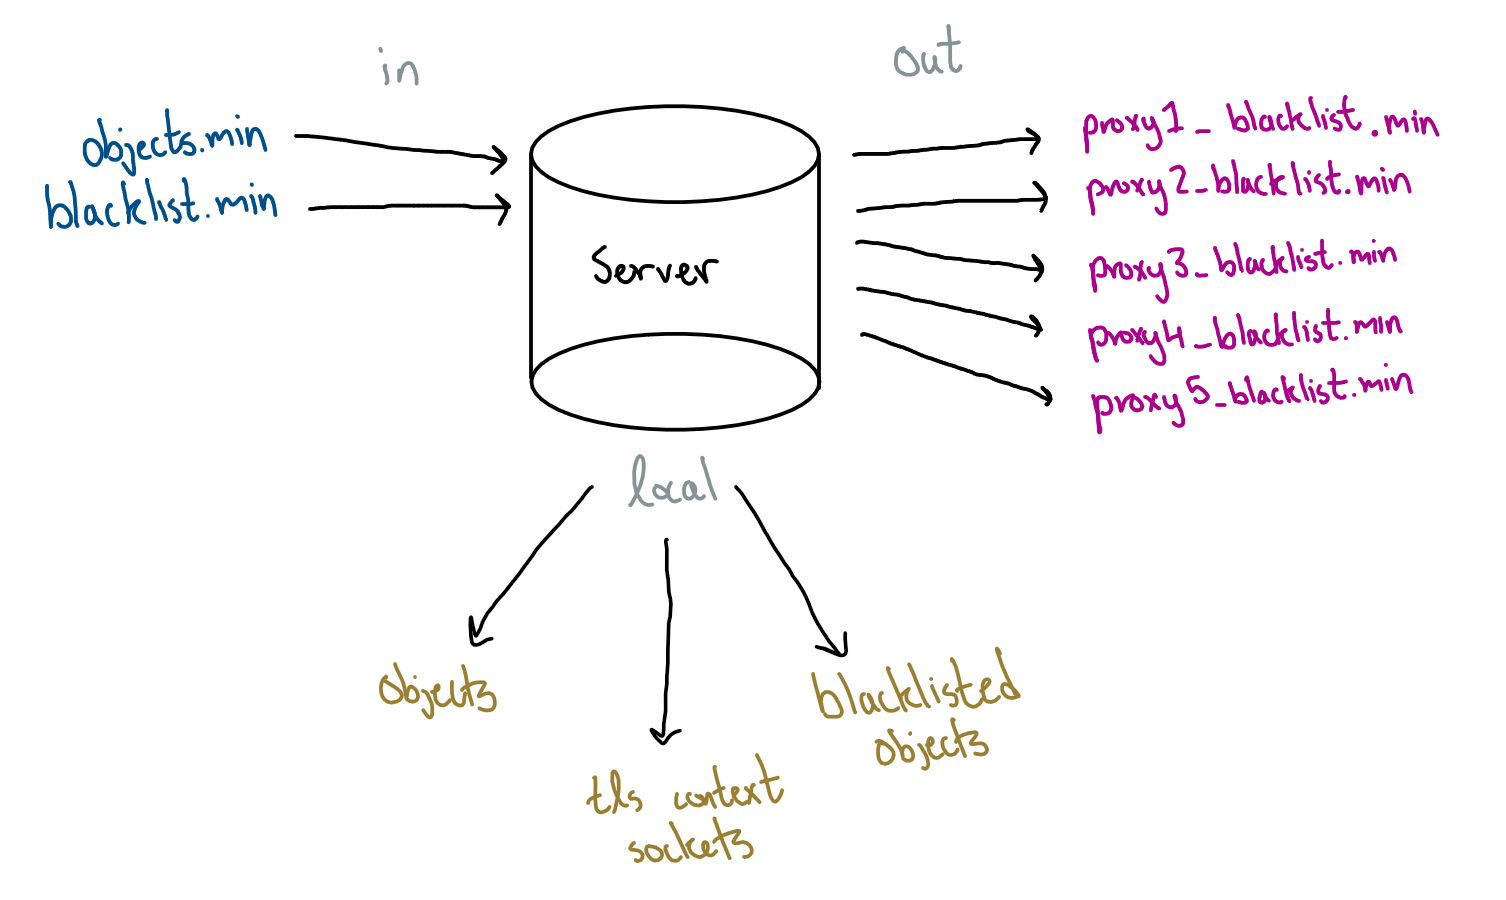 in
out
objects.min
blacklist.min
Server
proxy1_blacklist.min
proxy2_blacklist.min
proxy3_blacklist.min
proxy4_blacklist.min
proxy5_blacklist.min
local
objects
tls context
sockets
blacklisted
objects